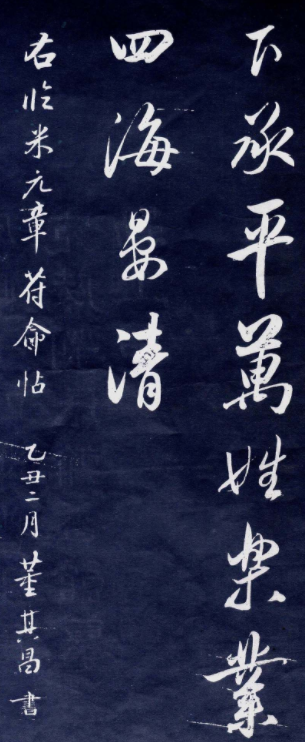 下承平萬姓樂業
四海晏清
右臨米元章符命帖 乙丑二月董其昌書